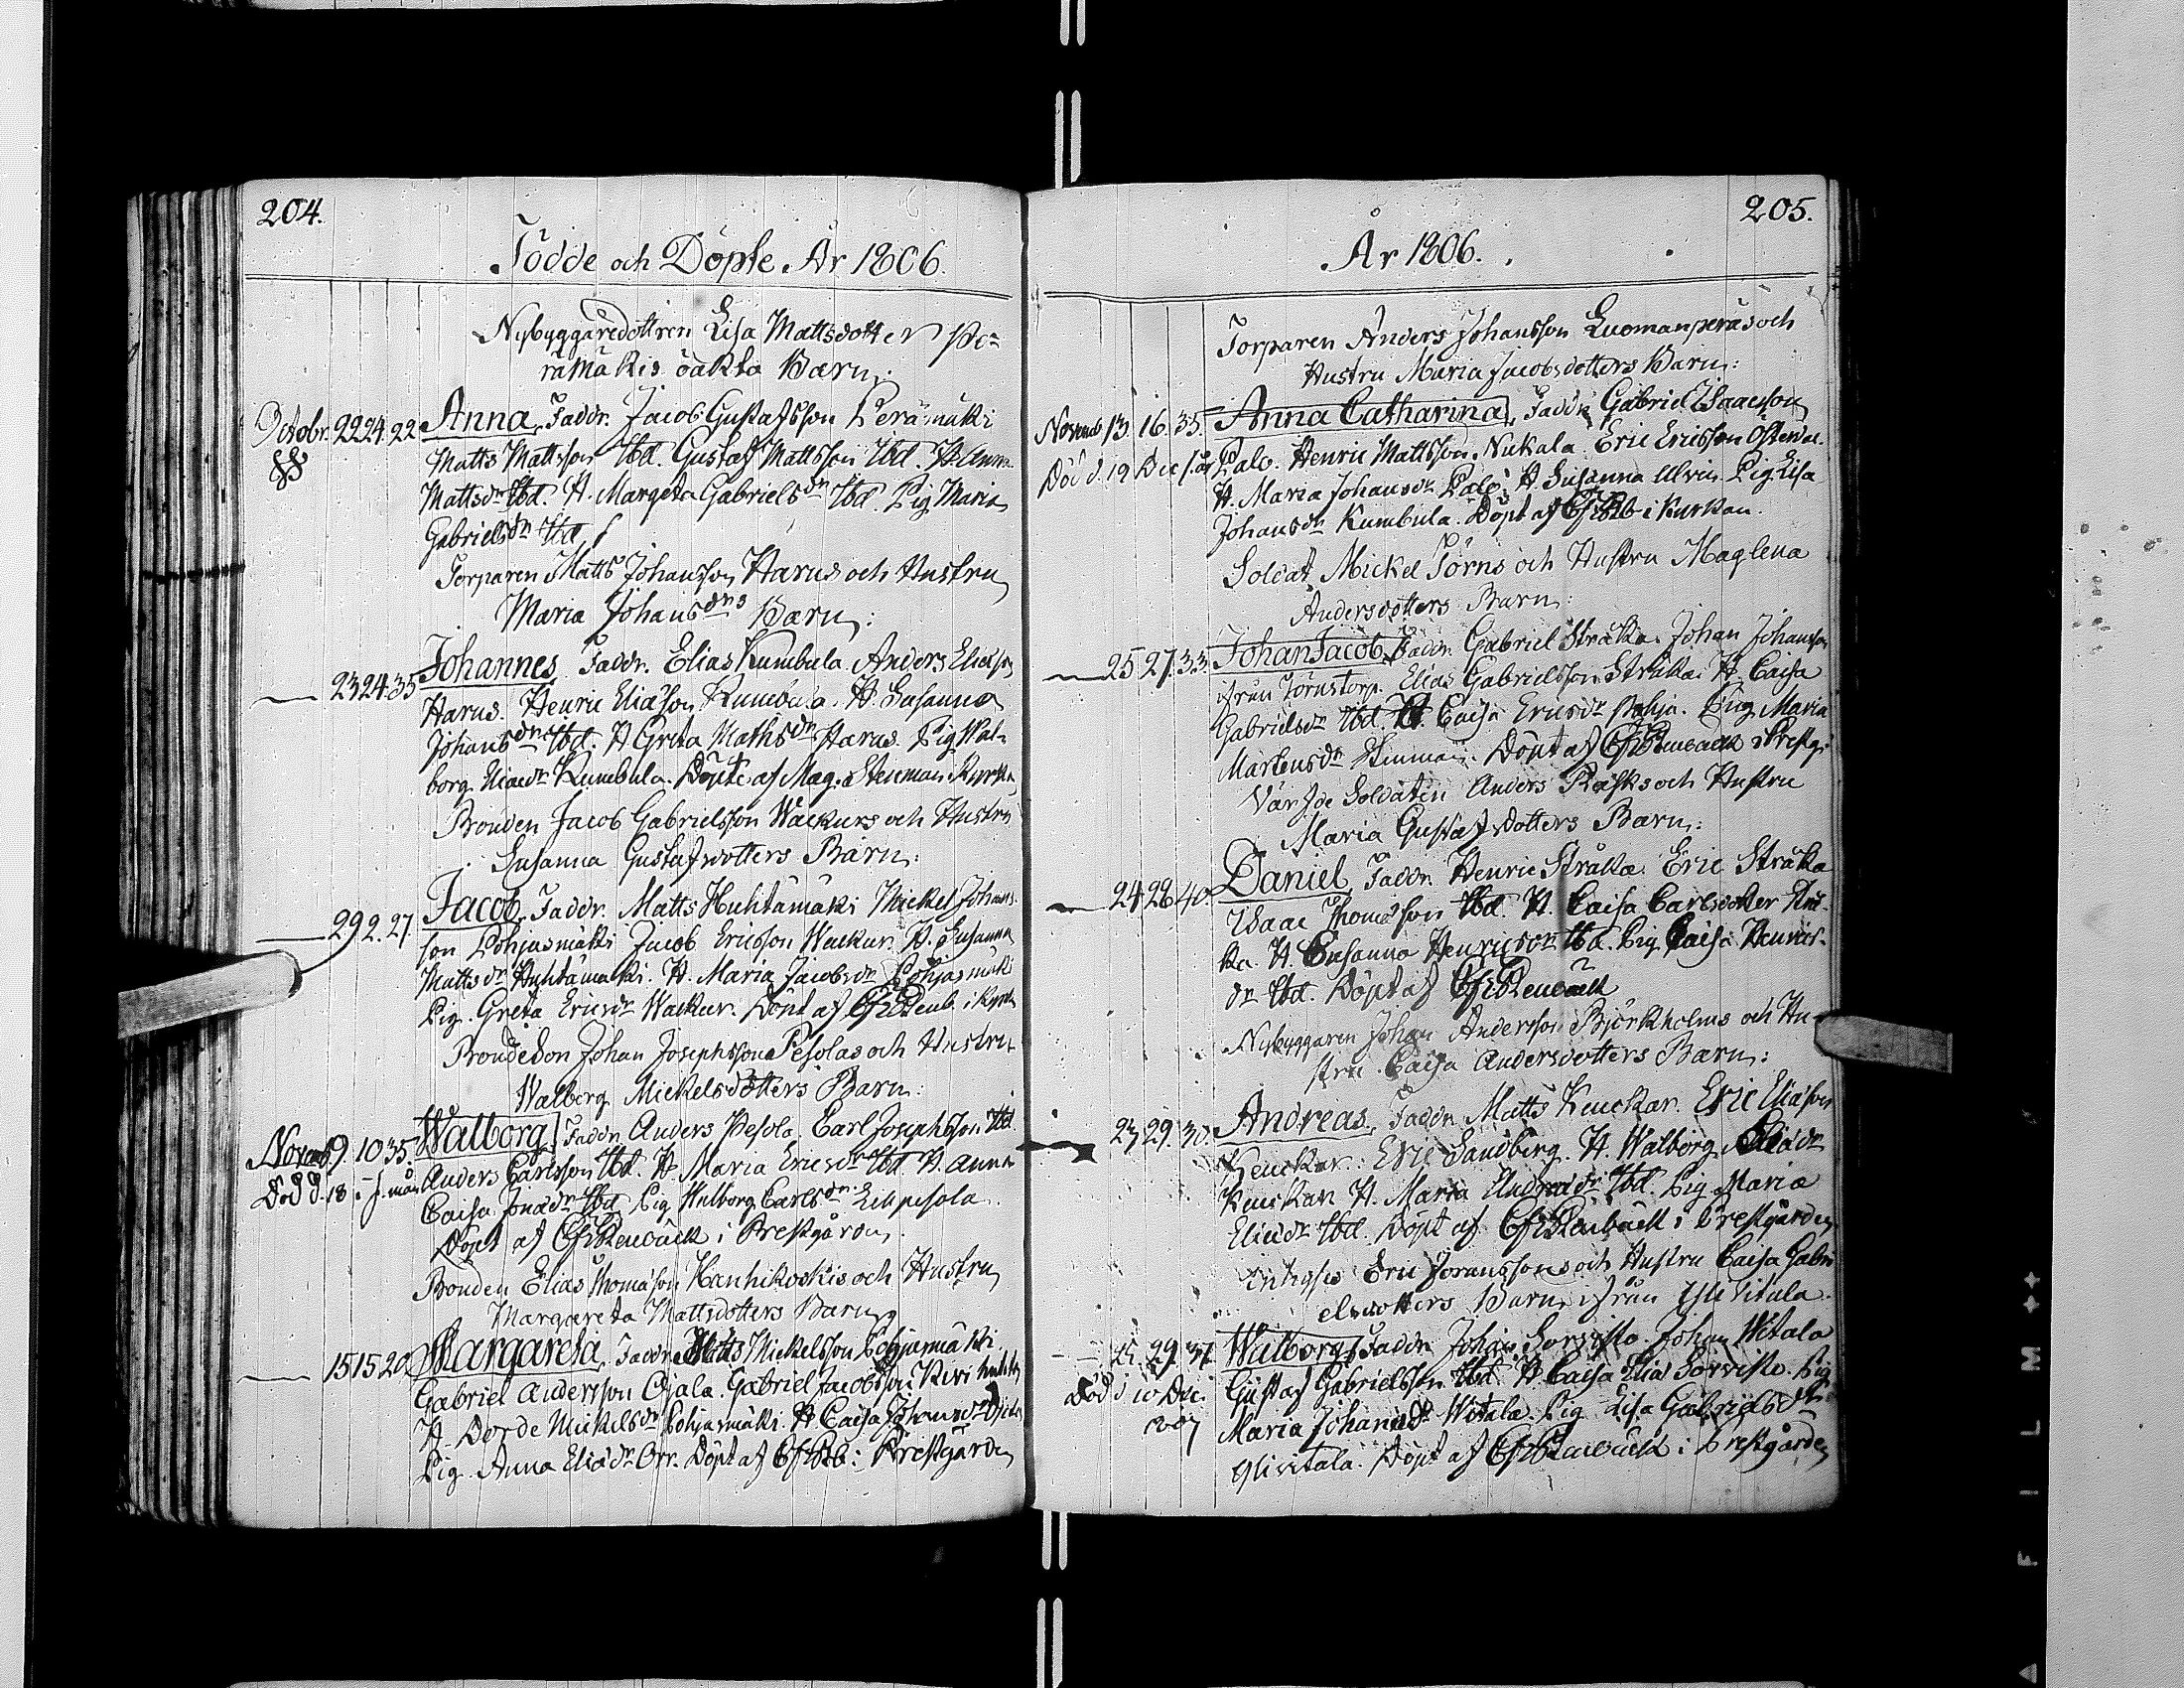 204.
Födde och Döpte År 1806.
Nybyggaredottren Lisa Mattsdotter Pe=
rämäkis oäkta Barn:
Octobr. 22 24. 22 Anna, Faddr. Jacob Gustafsson Perämäki
Matts Mattsson Ibd. Gustaf Mattsson Ibd. H. Anna
Mattsdr Ibd. H. Margeta Gabrielsdr Ibd. Pig. Maria
Gabrielsdr Ibd.
Torparen Matts Johansson Harus och Hustru
Maria Johansdrs Barn:
23 24. 35 Johannes, Faddr. Elias Kumbula. Anders Eliæson
Harus. Henric Eliæson Kumbula. H. Susanna
Johansdr Ibd. H. Greta Mathsdr Harus. Pig Wal=
borg Eliædr Kumbula. Döpte af Mag. Stenman
Bonden Jacob Gabrielsson Wackurs och Hustru
Susanna Gustafsdotters Barn:
29 2. 27 Jacob, Faddr. Matts Huhtamäki Mickel Johans=
son Pohjasmäki Jacob Ericsson Wackur. H. Susanna
Mattsdr Huhtamäki. H. Maria Jacobsdr Pohjasmäki
Pig. Greta Ericsdr Wackur. Döpt af
Bondeson Johan Josephsson Pesolas och Hustru
Walborg Mickelsdotters Barn:
Novemb. 9. 10 35. Walborg, Faddr. Anders Pesola. Carl Josephsson Ibd.
Död d. 18 Anders Carlsson Ibd. H. Maria Ericsdr Ibd. H. Anna
Caisa Jonædr Ibd. Pig Walborg Carlsdr
Döpt af i Prestgården.
Bonden Elias Thomæson Hanhikoskis och Hustru
Margareta Mattsdotters Barn
15 15 20 Margareta, Faddr. Matts Mickelsson Pohjasmäki
Gabriel Andersson Ojala. Gabriel Jacobsson Kivimäki
H. Dorde Mickelsdr Pohjasmäki. H. Caisa Johansdr Ojala
Pig. Anna Eliædr Orr. Döpt af i Prestgården
205.
År 1806.
Torparen Anders Johansson Luomanperäs och
Hustru Maria Jacobsdotters Barn:
Novemb. 13. 16. 35. Anna Catharina, Faddr. Gabriel Isaacsson
Död d. 19 Dec. Palo. Henric Mattsson Nickala. Eric Ericsson
H. Maria Johansdr Palo. H. Susanna Ulvin. Pig. Lisa
Johansdr Kumbula. Döpt af i Kyrkan.
Soldat Mickel Törns och Hustru Maglena
Andersdotters Barn:
25 27. 33. Johan Jacob, Faddr. Gabriel Stråka. Johan Johansson
från Törnstorp. Elias Gabrielsson Stråka. H. Caisa
Gabrielsdr Ibd. H. Caisa Ericsdr Pohja. Pig Maria
Martensdr Döpt af i Prestg.
Värfde Soldaten Anders Rasks och Hustru
Maria Gustafsdotters Barn:
24 28 40. Daniel, Faddr. Henric Stråka. Eric Stråka
Isaac Thomæsson Ibd. H. Caisa Carlsdotter Strå=
ka. H. Susanna Henricsdr Ibd. Pig Caisa Henrics=
dr Ibd. Döpt af
Nybyggaren Johan Andersson Björkholms och Hu=
stru Caisa Andersdotters Barn:
27 29. 30. Andreas, Faddr. Matts Keuckar. Eric Eliæson
Keuckar. Eric Sandberg. H. Walborg Eliædr
Keuckar H. Maria Andreædr Ibd. Pig Maria
Eliædr Ibd. Döpt af i Prestgården
Inhyses Eric Göransson och Hustru Caisa Gabri
elsdotters Barn från Yliwitala.
29 37 Walborg, Faddr. Johan Sorvisto. Johan Witala
Död d 10 Dec. Gustaf Gabrielsson Ibd. H. Caisa Eliæ Sorvisto. Pig
1807 Maria Johansdr Witala. Pig. Lisa Gabrielsdr
Yliwitala. Döpt af i Prestgården
FILM